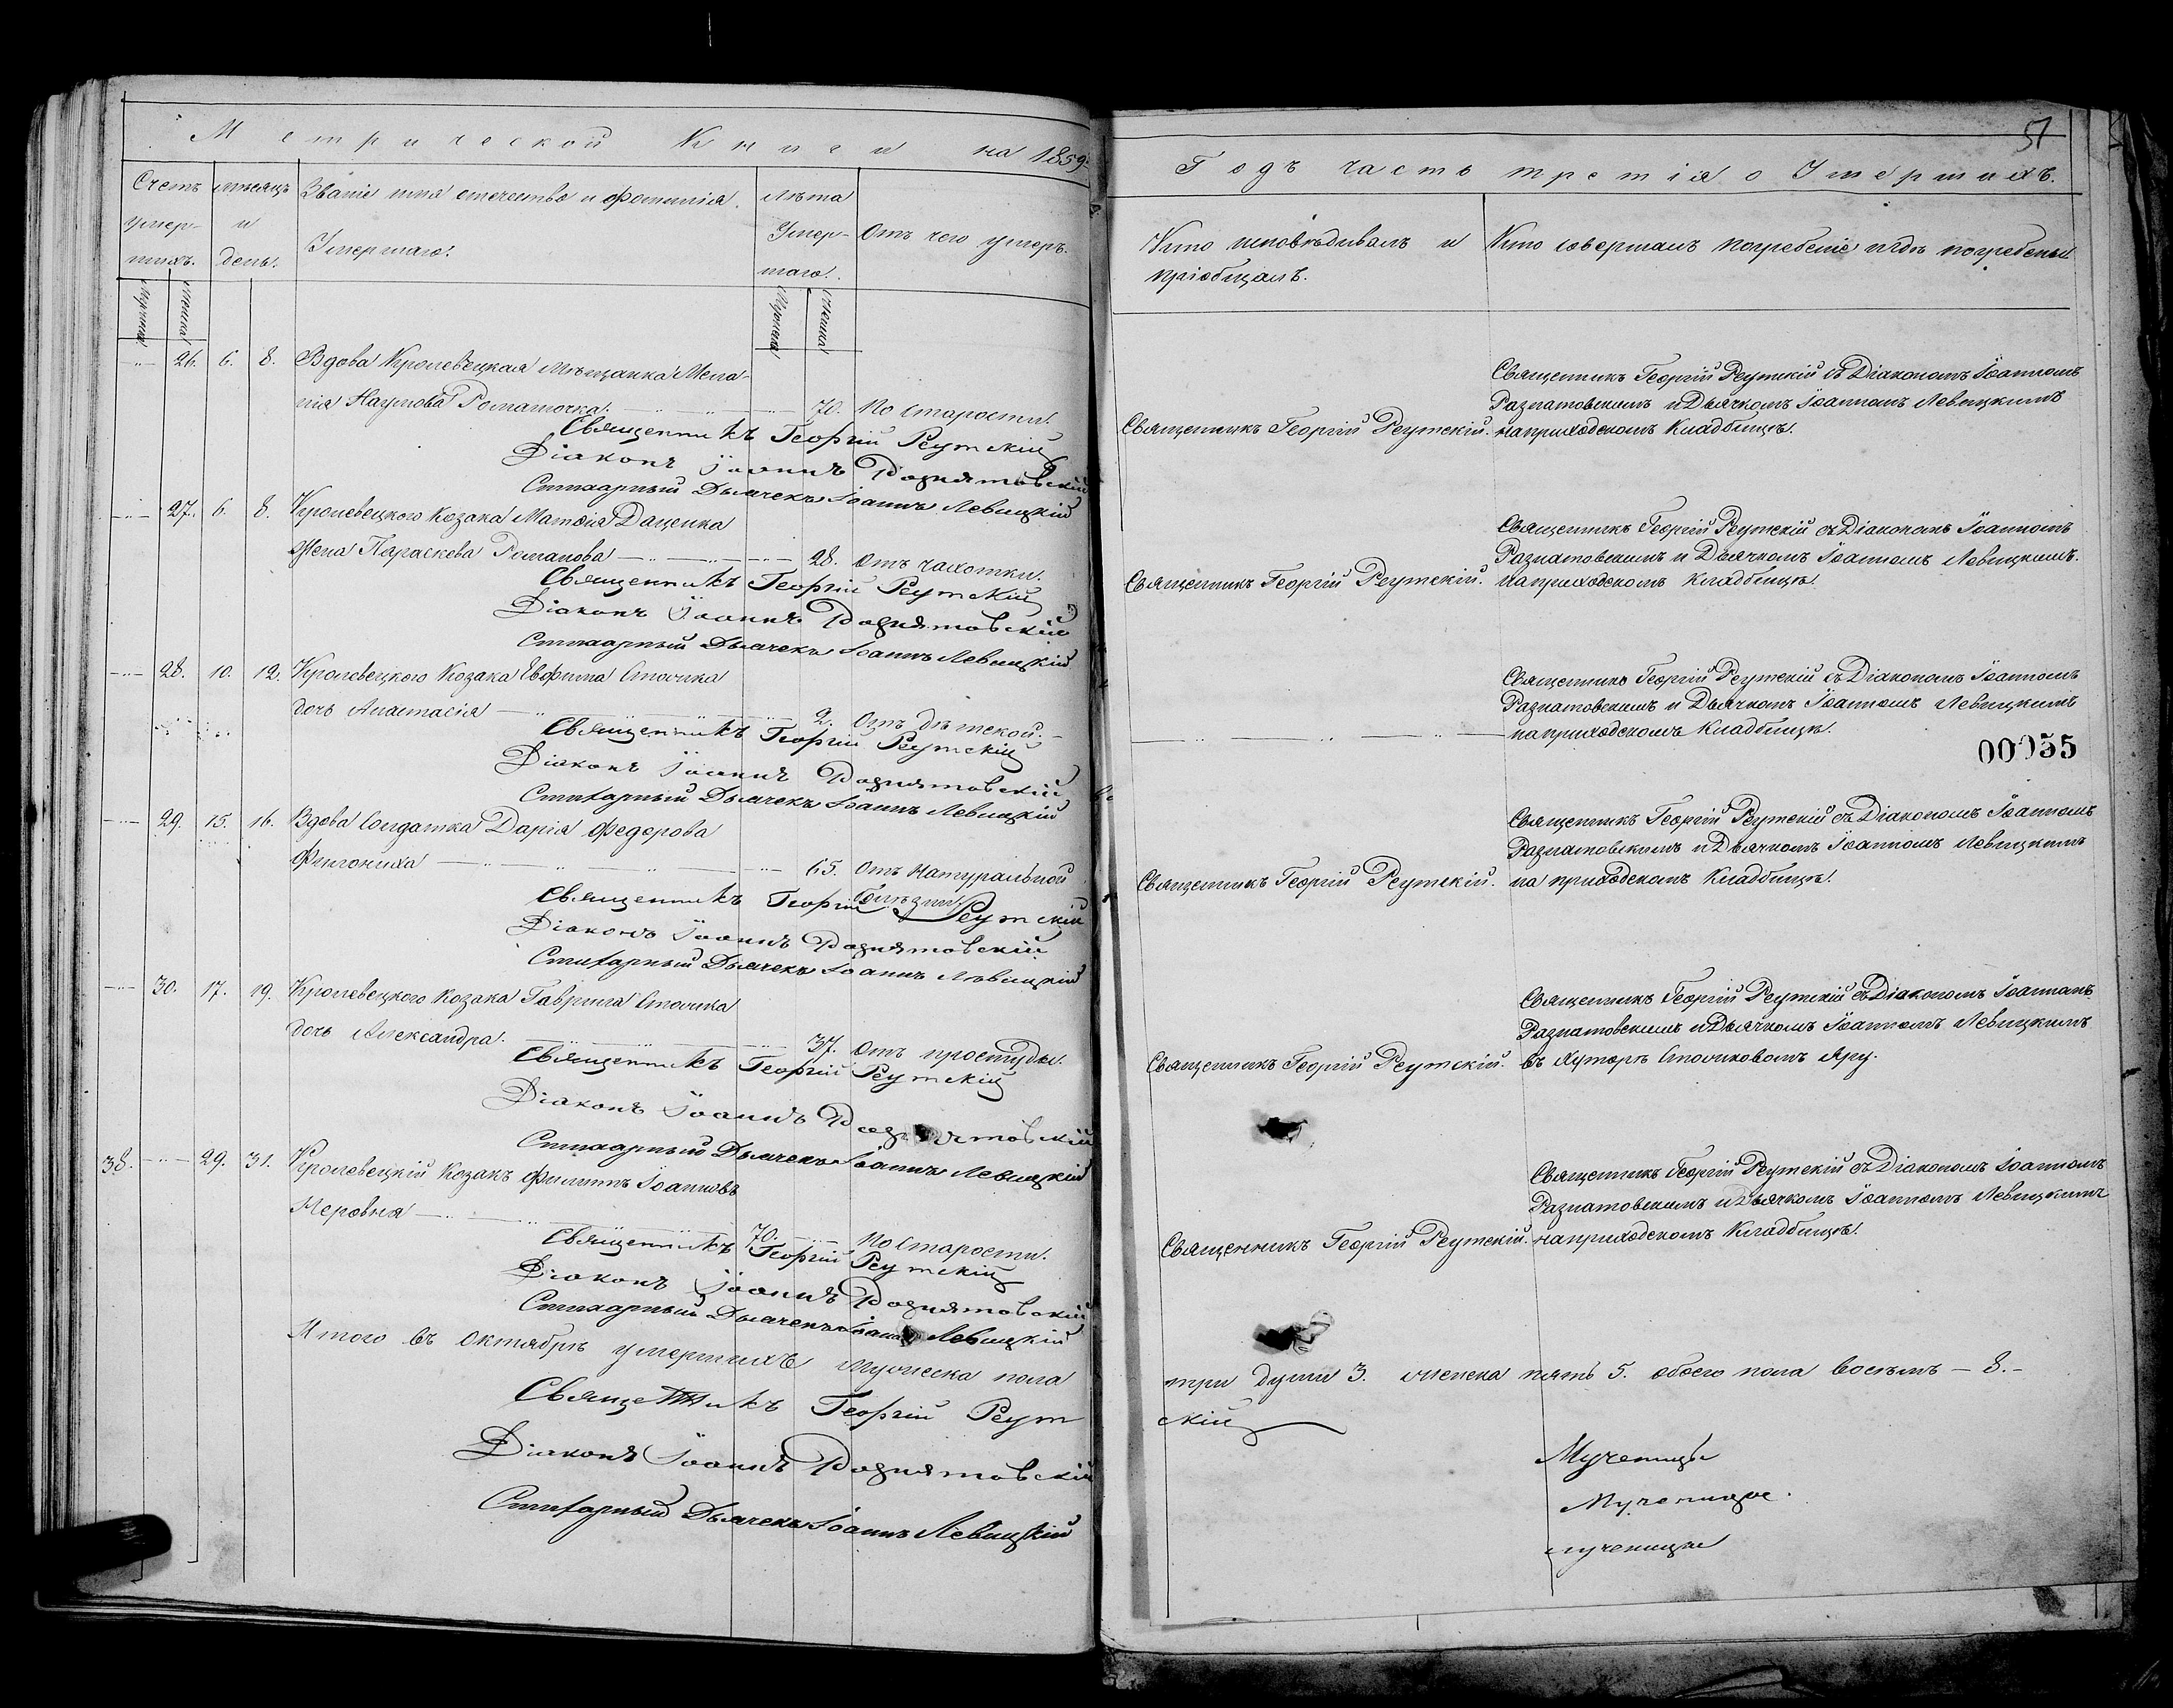 Метрической Книги на 1859.
Счетъ умер-шихъ. Мѣсяцъ и день. Званіе имя отечество и фамилія Умершаго. Лѣта Умер-шаго. Отъ чего умеръ.
Мужчина Женска Мужчина Женска
26. 6. 8. Вдова Кролевецкая Мѣщанка Мела-
нія Наумова Ромашочка. 70. По старости.
Священникъ Георгій Реутскій
Діаконъ Іоаннъ Разнатовскій
Стихарный Дьячекъ Іоаннъ Левицкій
27. 6. 8. Кролевецкого Козака Матѳія Даценка
Жена Параскева Романова 28. Отъ чахотки.
Священникъ Георгій Реутскій
Діаконъ Іоаннъ Разнатовскій
Стихарный Дьячекъ Іоаннъ Левицкій
28. 10. 12. Кролевецкого Козака Евфима
дочь Анастасія 2. Отъ дѣтской.
Священникъ Георгій Реутскій
Діаконъ Іоаннъ Разнатовскій
Стихарный Дьячекъ Іоаннъ Левицкій
29. 15. 16. Вдова Солдатка Дарія Федорова
65. Отъ Натуральной
болѣзни
Священникъ Георгій Реутскій
Діаконъ Іоаннъ Разнатовскій
Стихарный Дьячекъ Іоаннъ Левицкій
30. 17. 19. Кролевецкого Козака Гаврила
дочь Александра. 37. Отъ простуды.
Священникъ Георгій Реутскій
Діаконъ Іоаннъ Разнатовскій
Стихарный Дьячекъ Іоаннъ Левицкій
38. 29. 31. Кролевецкій Козакъ Филиппъ Іоанновъ
70. По Старости.
Священникъ Георгій Реутскій
Діаконъ Іоаннъ Разнатовскій
Стихарный Дьячекъ Іоаннъ Левицкій
Итого въ Октябрѣ умершихъ мужеска пола
Священникъ Георгій Реут
Діаконъ Іоаннъ Разнатовскій
Стихарный Дьячекъ Іоаннъ Левицкій
51
Годъ часть третія о Умершихъ.
Кто исповѣдывалъ и пріобщалъ.
Кто совершалъ погребеніе и гдѣ погребены
Священникъ Георгій Реутскій съ Діакономъ Іоанномъ
Разнатовскимъ и Дьячкомъ Іоанномъ Левицкимъ
Священникъ Георгій Реутскій. на приходскомъ Кладбищѣ.
Священникъ Георгій Реутскій съ Діакономъ Іоанномъ
Разнатовскимъ и Дьячкомъ Іоанномъ Левицкимъ.
Священникъ Георгій Реутскій. на приходскомъ кладбищѣ.
Священникъ Георгій Реутскій съ Діакономъ Іоанномъ
Разнатовскимъ и Дьячкомъ Іоанномъ Левицкимъ
на приходскомъ Кладбищѣ.
00055
Священникъ Георгій Реутскій съ Діакономъ Іоанномъ
Разнатовскимъ и Дьячкомъ Іоанномъ Левицкимъ
Священникъ Георгій Реутскій. на приходскомъ Кладбищѣ.
Священникъ Георгій Реутскій съ Діакономъ Іоанномъ
Разнатовскимъ и Дьячкомъ Іоанномъ Левицкимъ
Священникъ Георгій Реутскій. въ Хуторѣ Яру.
Священникъ Георгій Реутскій съ Діакономъ Іоанномъ
Разнатовскимъ и Дьячкомъ Іоанномъ Левицкимъ
Священникъ Георгій Реутскій. на приходскомъ Кладбищѣ.
три души 3. женска пять 5. обоего пола восьмъ - 8.-
скій
Мученицы
Мученицы.
мученицы